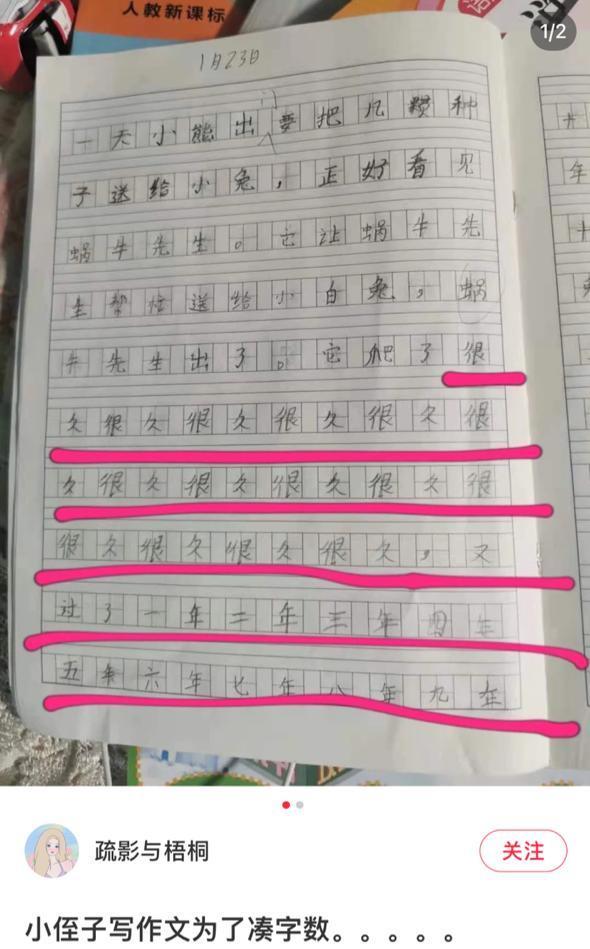 人教新课标
1/2
1月23日
一天小熊出门要把几颗种
子送给小兔，正好看见
蜗牛先生。它让蜗牛先
生帮忙送给小白兔，蜗
牛先生出了。它爬了很
久很久很久很久很久很
久很久很久很久很久很
很久很久很久很久，又
过了一年二年三年四年
五年六年七年八年九年
疏影与梧桐
关注
小侄子写作文为了凑字数。。。。。